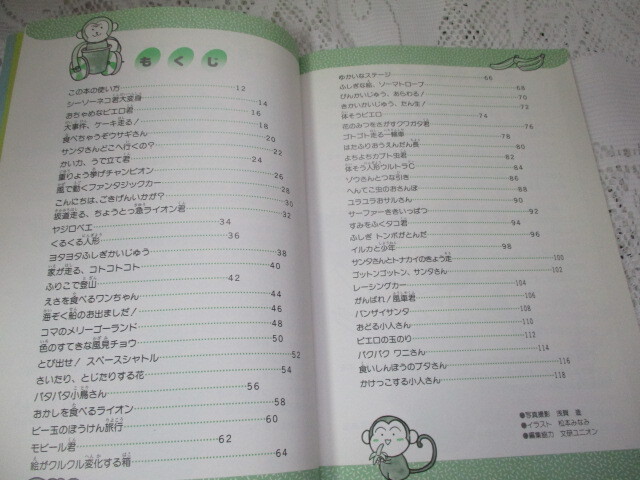 もくじ
この本の使い方 12
シーソーネコ君大変身 14
おちゃめなピエロ君 16
大事件、ケーキ走る! 18
食べちゃうぞウサギさん 20
サンタさんどこへ行くの? 22
かい力、うで立て君 24
重りよう挙げチャンピオン 26
風で動くファンタジックカー 28
こんにちは、ごきげんいかが? 30
坂道走る、ちょうとっ急ライオン君 32
ヤジロベエ 34
くるくる人形 36
ヨタヨタふしぎかいじゅう 38
家が走る、コトコトコト 40
ふりこで登山 42
えさを食べるワンちゃん 44
海ぞく船のお出ましだ! 46
コマのメリーゴーランド 48
色のすてきな風見チョウ 50
とび出せ! スペースシャトル 52
さいたり、とじたりする花 54
パタパタ小鳥さん 56
おかしを食べるライオン 58
ビー玉のぼうけん旅行 60
モビール君 62
絵がクルクル変化する箱 64
ゆかいなステージ 66
ふしぎな絵、ソーマトロープ 68
びんかいじゅう、あらわる! 70
きかいかいじゅう、たん生! 72
体そうピエロ 74
花のみつをさがすクワガタ君 76
ゴトゴト走る一輪車 78
はたふりおうえんだん長 80
よちよちカブト虫君 82
体そう人形ウルトラC 84
ゾウさんとつな引き 86
へんてこ虫のおさんぽ 88
ユラユラおサルさん 90
サーファーききいっぱつ 92
すみをふくタコ君 94
ふしぎ トンボがとんだ 96
イルカと少年 98
サンタさんとトナカイのきょう走 100
ゴットンゴットン、サンタさん 102
レーシングカー 104
がんばれ!風車君 106
バンザイサンタ 108
おどる小人さん 110
ピエロの玉のり 112
パクパク ワニさん 114
食いしんぼうのブタさん 116
かけっこする小人さん 118
●写真撮影 浅賀
●イラスト 松本みなみ
●編集協力 文研ユニオン